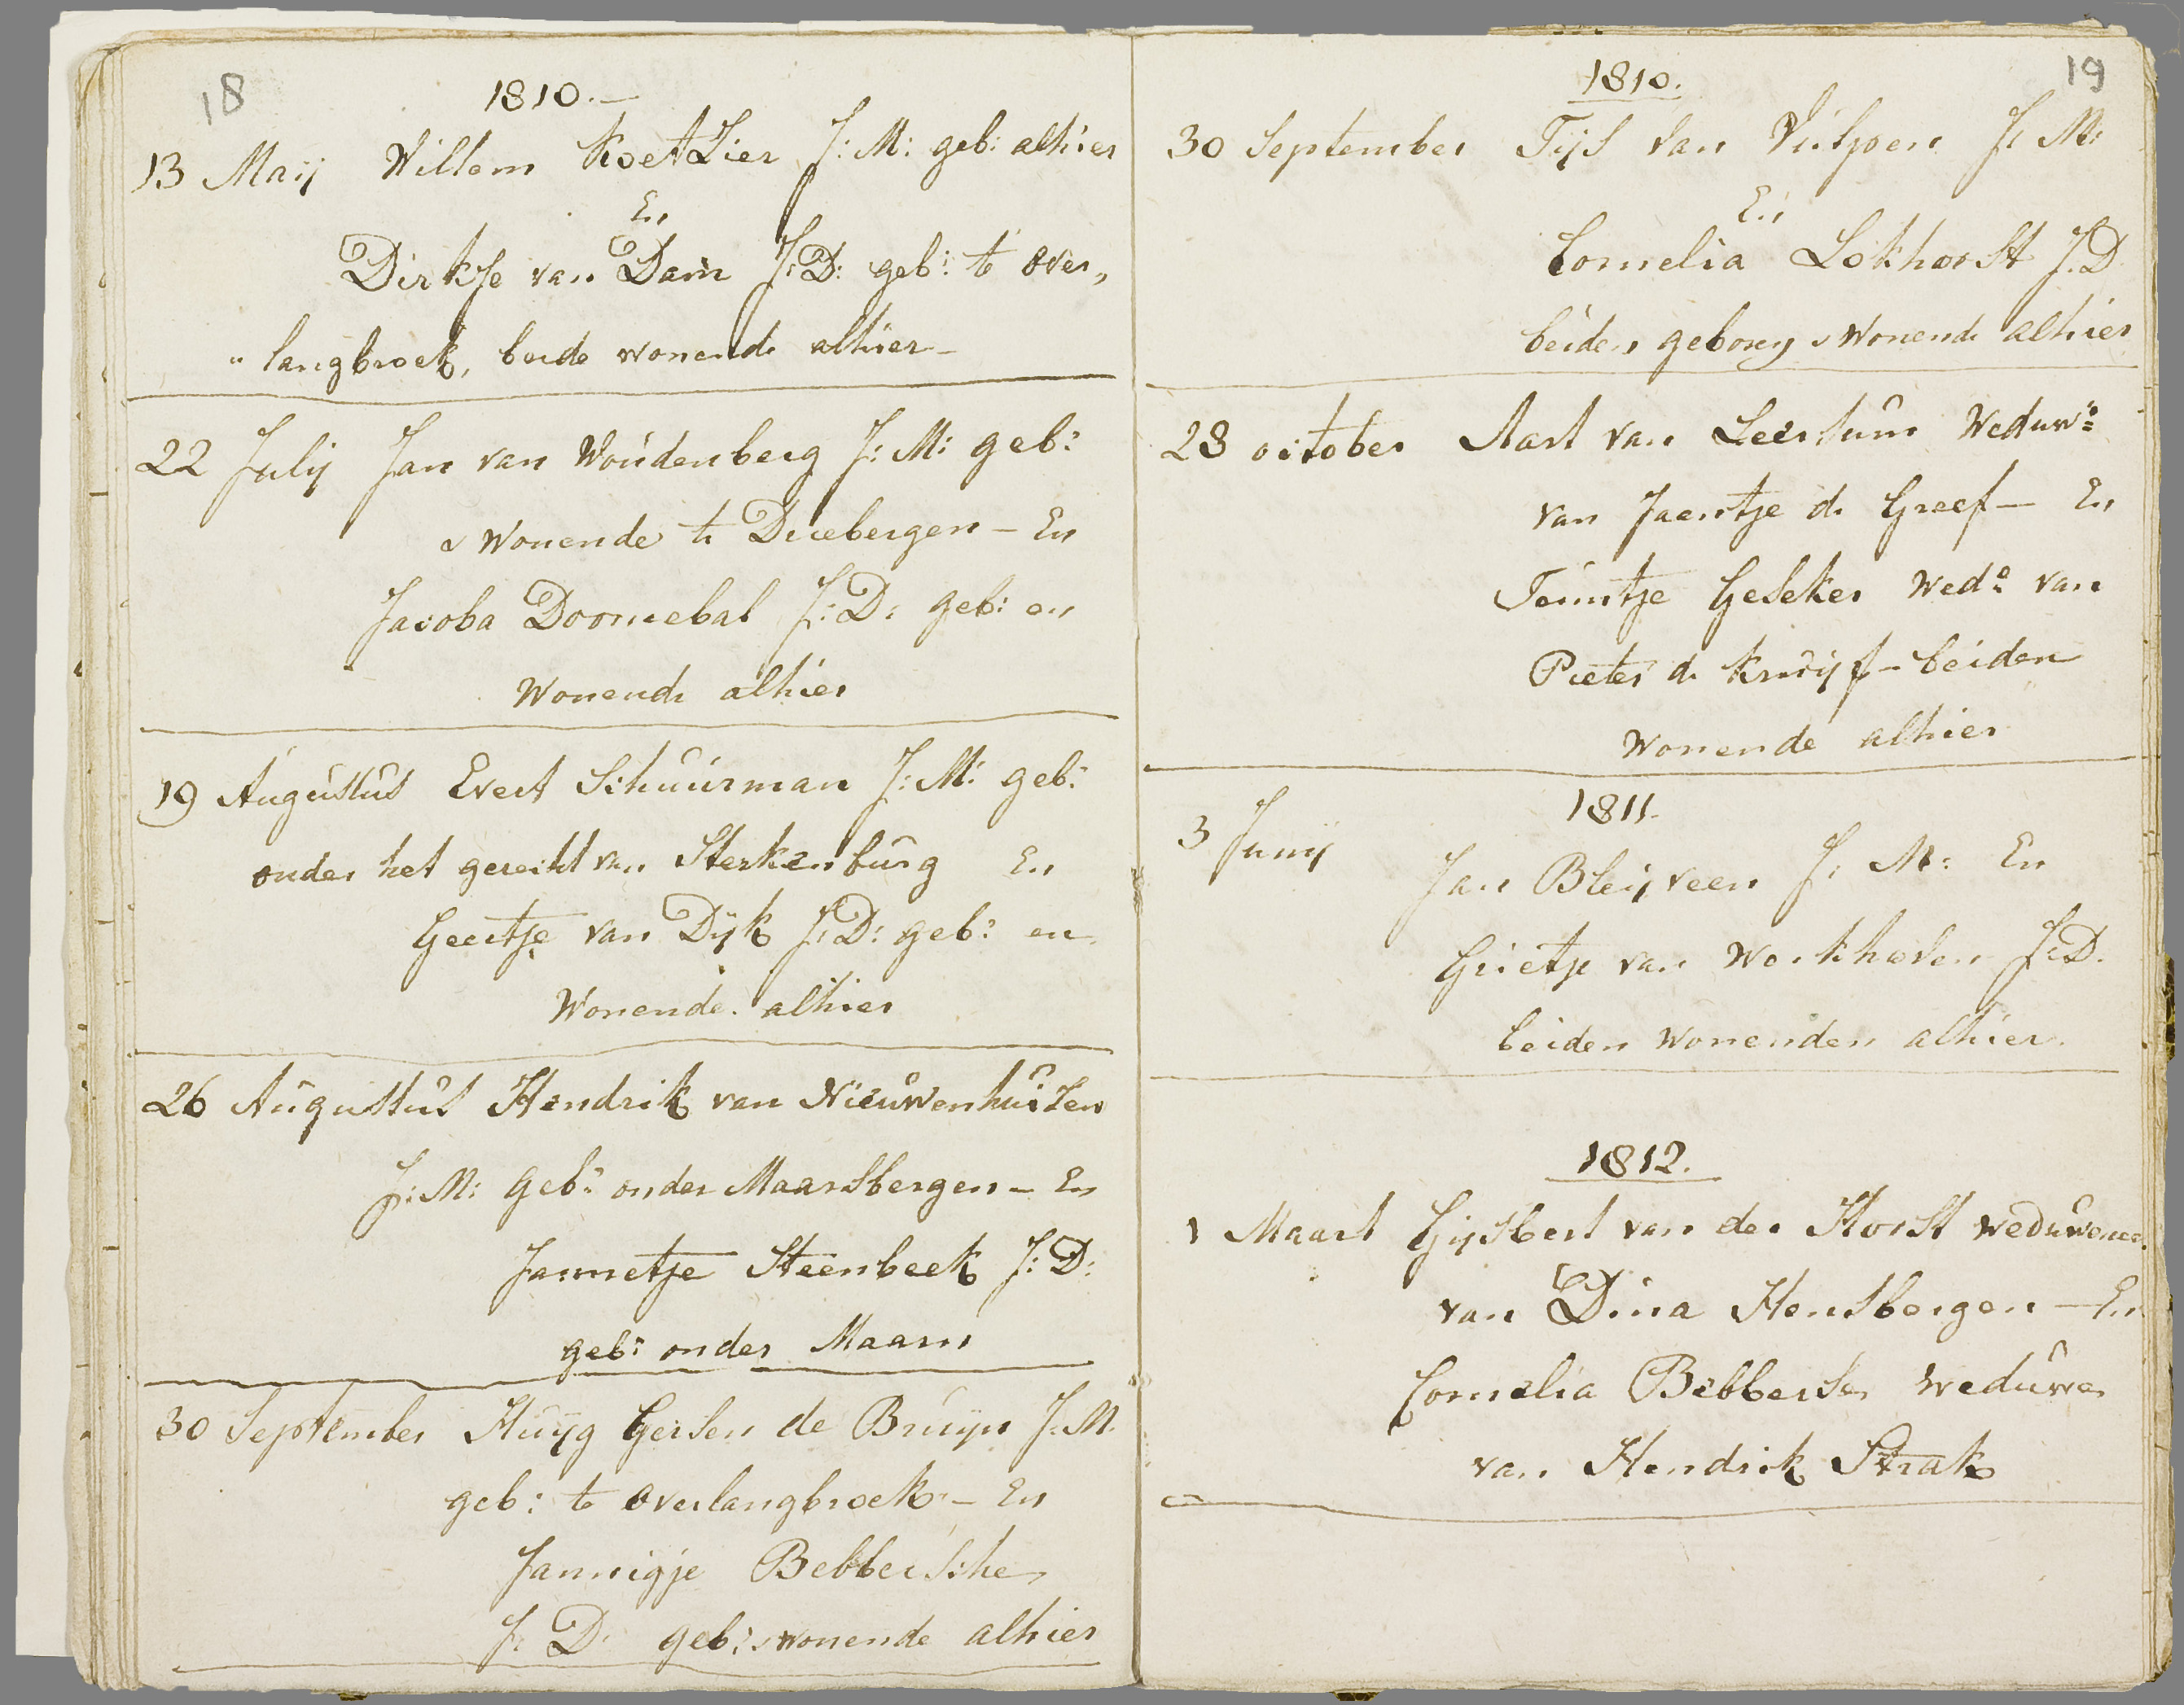 18
1810.—
13 Maij Willem Koetzier J: M: geb: alhier
En
Dirkje van Dam J: D: geb: te over„
„langbroek, beide wonende alhier—
22 Julij Jan van Woudenberg J: M: geb:
& wonende te Driebergen — En
Jacoba Doornebal J: D: geb: en
Wonende alhier
19 Augustus Evert Schuurman J: M: geb:
onder het gerecht van Sterkenburg En
Geertje van Dijk J: D: geb: en
Wonende alhier
26 Augustus Hendrik van Nieuwenhuizen
J: M: geb: onder Maarsbergen — En
Jannetje Steenbeek J: D:
geb: onder Maarn
30 September Huijg Gersen de Bruijn J: M.
geb: te overlangbroek — En
Jannigje Bebbersche
J: D: geb: & wonende alhier
19
1810.
30 September Tijs van Vulpen J: M:
En
Cornelia Lokhorst J. D
beiden geboren & Wonende alhier
28 october Aart van Leersum Weduwr
van Jaentje de Greef — En
Teuntje Geseker Wede van
Pieter de Kruijf — beiden
Wonende alhier
1811.
3 Junij
Jan Bleijveen J: M: En
Grietje van Workhoven J: D.
beiden Wonenden alhier.
1812.
1 Maart Gijsbert van der Horst weduwenaar
van Dina Hensbergen — En
Cornelia Bebberse weduwe
van Hendrik Strak